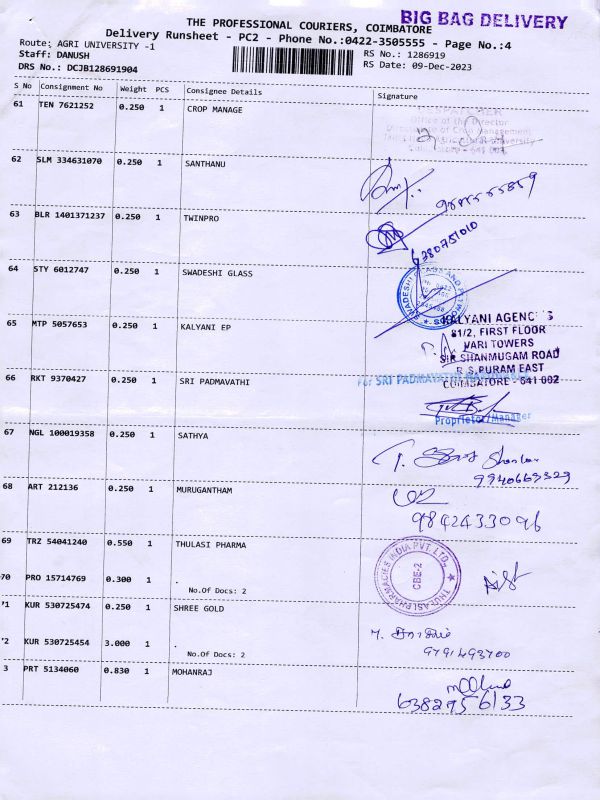 BIG BAG DELIVERY
THE PROFESSIONAL COURIERS, COIMBATORE
Delivery Runsheet - PC2 - Phone No.:0422-3505555 - Page No.:4
Route: AGRI UNIVERSITY -1
RS No.: 1286919
Staff: DANUSH
RS Date: 09-Dec-2023
DRS No.: DCJB128691904
S No Consignment No Weight PCS Consignee Details Signature
61 TEN 7621252 0.250 1 CROP MANAGE
Office of the Director
Directorate of Crop Management
Coimbatore - 641 003
62 SLM 334631070 0.250 1 SANTHANU
63 BLR 1401371237 0.250 1 TWINPRO
6380751010
64 STY 6012747 0.250 1 SWADESHI GLASS
65 MTP 5057653 0.250 1 KALYANI EP
KALYANI AGENCIES
81/2, FIRST FLOOR
HARI TOWERS
SIR SHANMUGAM ROAD
R.S.PURAM EAST
COIMBATORE - 641 002
66 RKT 9370427 0.250 1 SRI PADMAVATHI
For SRI PADMAVATHI
Proprietor/Manager
67 NGL 100019358 0.250 1 SATHYA
9940669329
68 ART 212136 0.250 1 MURUGANTHAM
9842433096
69 TRZ 54041240 0.550 1 THULASI PHARMA
THULASI PHARMACIES INDIA PVT. LTD.
CBE-2
70 PRO 15714769 0.300 1 .
No.Of Docs: 2
71 KUR 530725474 0.250 1 SHREE GOLD
72 KUR 530725454 3.000 1 .
No.Of Docs: 2
9791493700
3 PRT 5134060 0.830 1 MOHANRAJ
6382956133